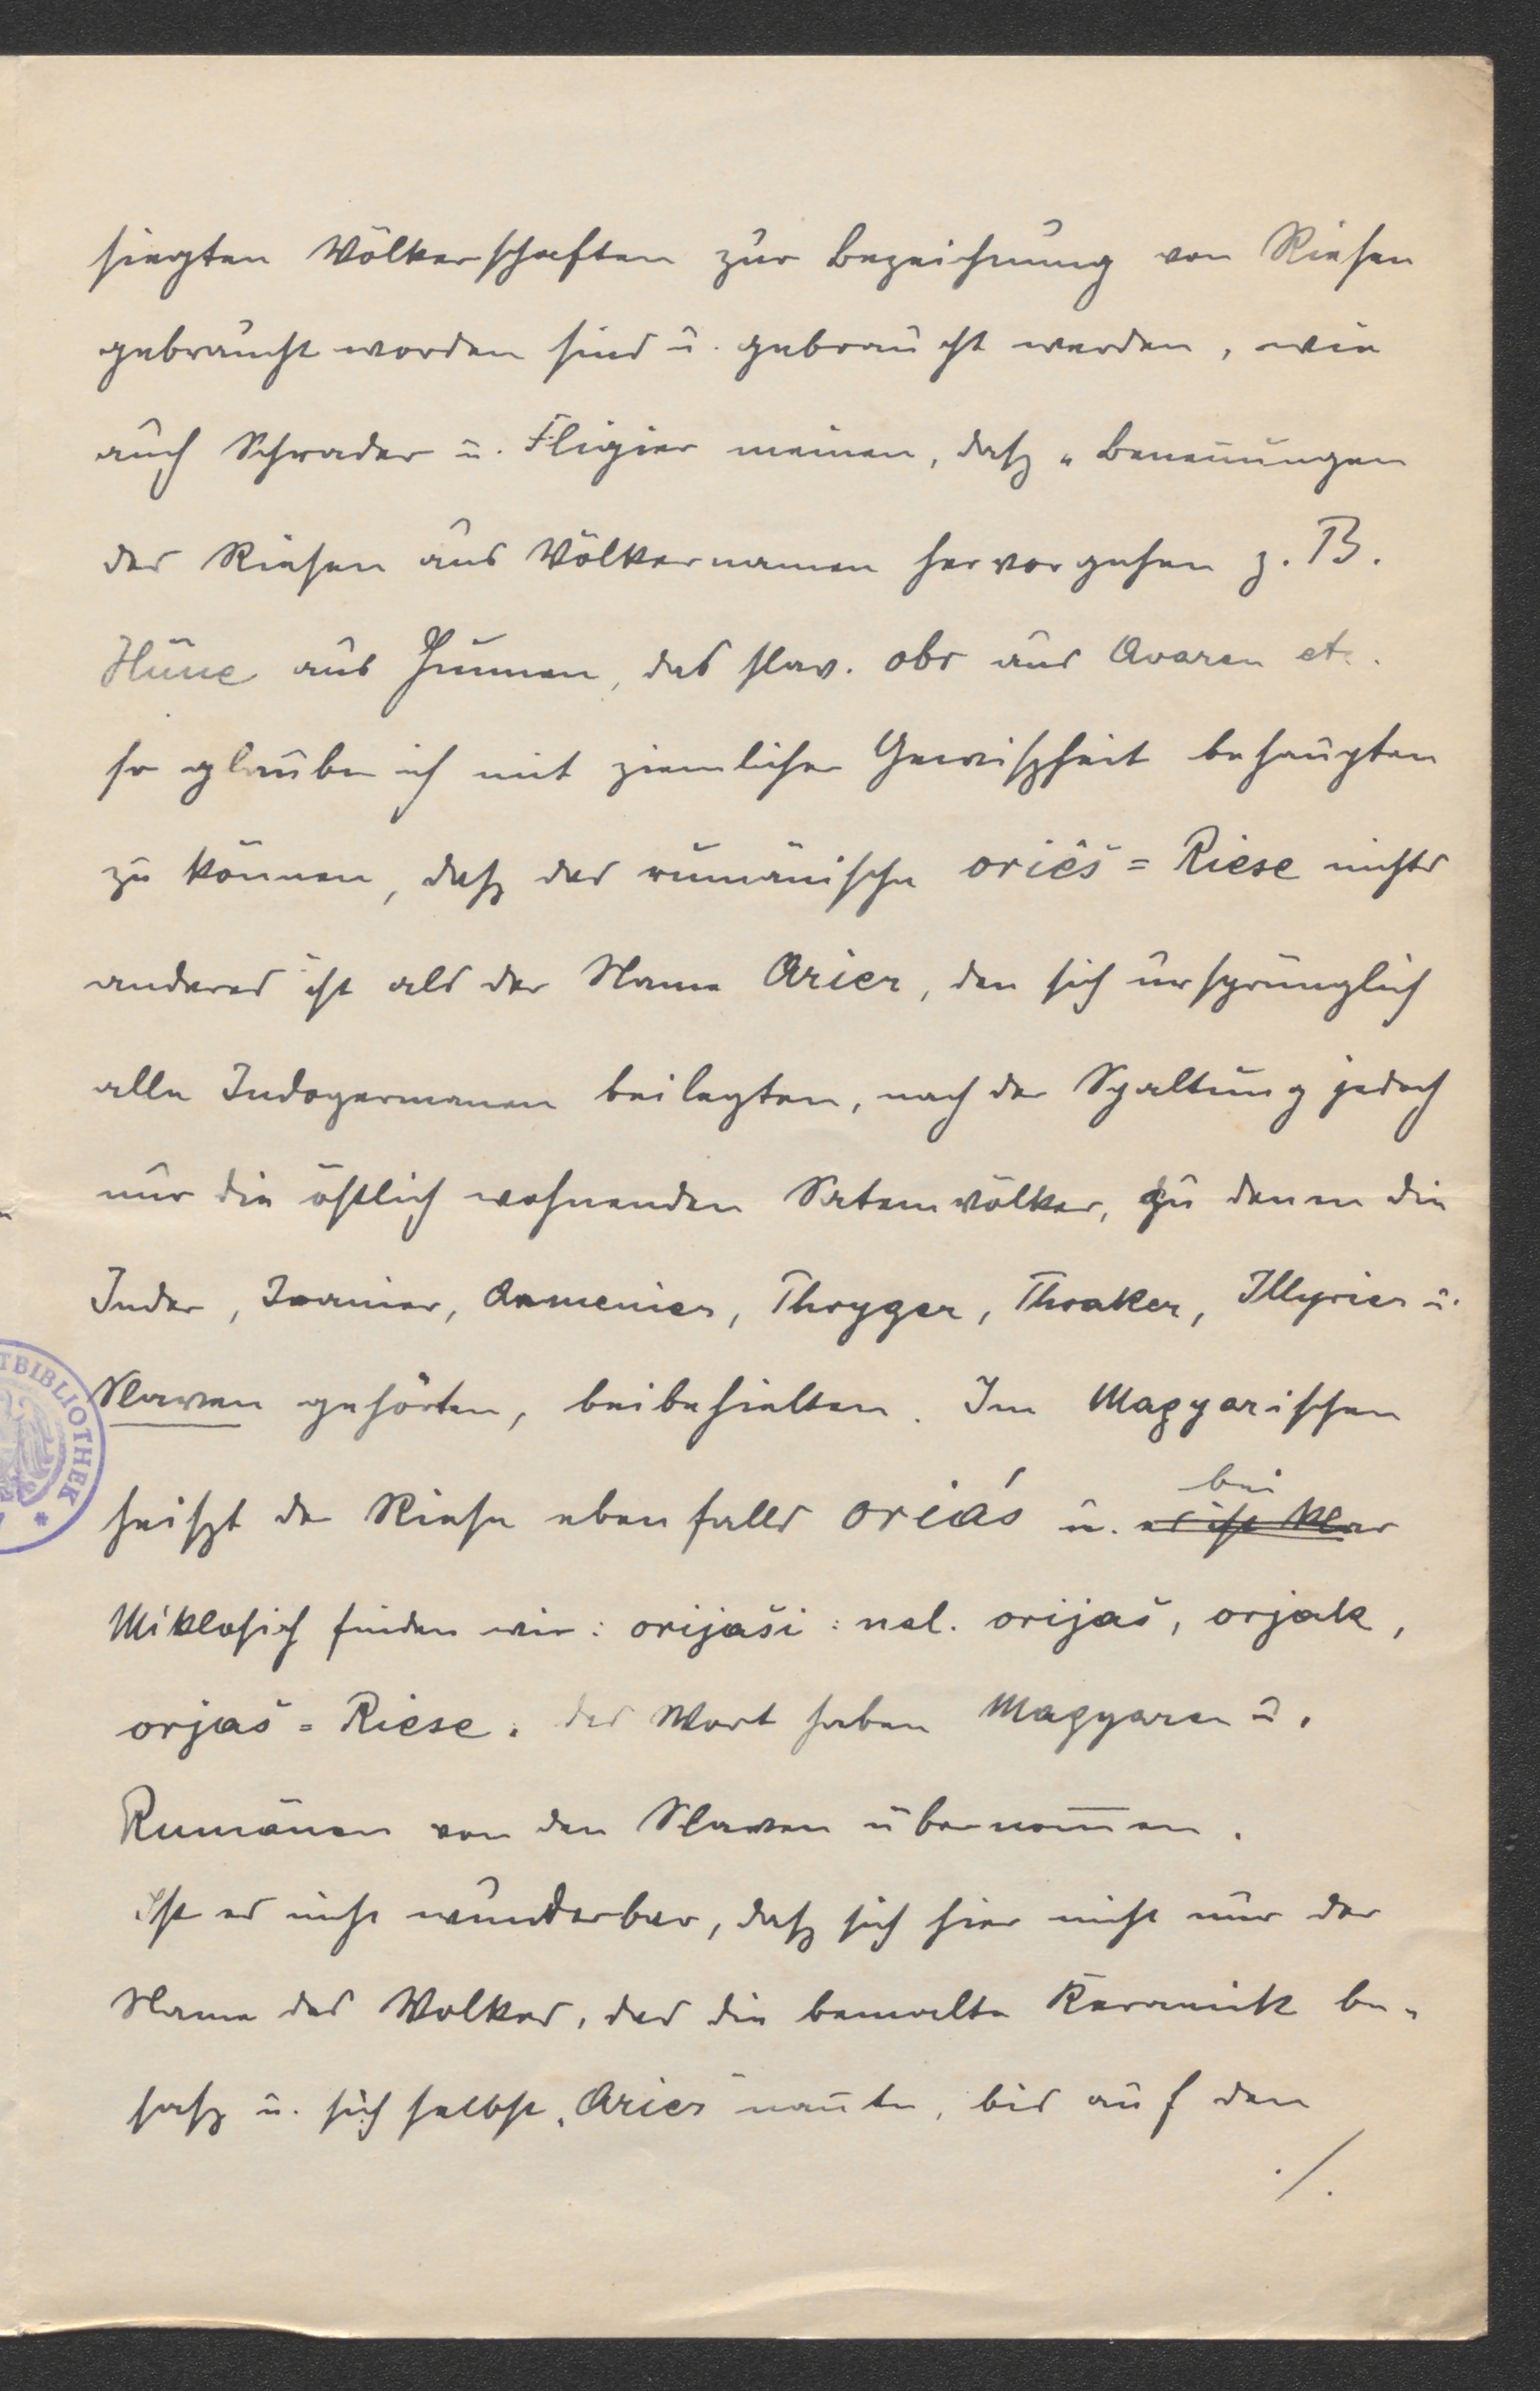 siegten Völkerschaften zur Bezeichnung von Riesen
gebraucht worden sind u. gebraucht werden, wie
auch Schrader u. Fligier meinen, daß „Benennungen
der Riesen aus Völkernamen hervorgehen z. B.
Hüne aus Hunnen, das slav. obr aus Avaren etc.
so glaube ich mit ziemlicher Gewißheit behaupten
zu können, daß das rumänische oriêš = Riese nichts
anderes ist als der Name Arier, den sich ursprünglich
alle Indogermanen beilegten, nach der Spaltung jedoch
nur die östlich wohnenden Satemvölker, zu denen die
Inder, Iranier, Armenier, Thryger, Thraker, Illyrier u.
Slawen gehörten, beibehielten. Im Magyarischen
heißt der Riese ebenfalls oriás u. es ist klar bei
Miklosich finden wir: orijaši: nsl. orijaš, orjak,
orjaš = Riese. Das Wort haben Magyaren u.
Rumänen von den Slawen übernommen.
Ist es nicht wunderbar, daß sich hier nicht nur der
Name des Volkes, das die bemalte Keramik be-
saß u. sich selbst „Arier" nannte, bis auf den
./.
TBIBLIOTHEK